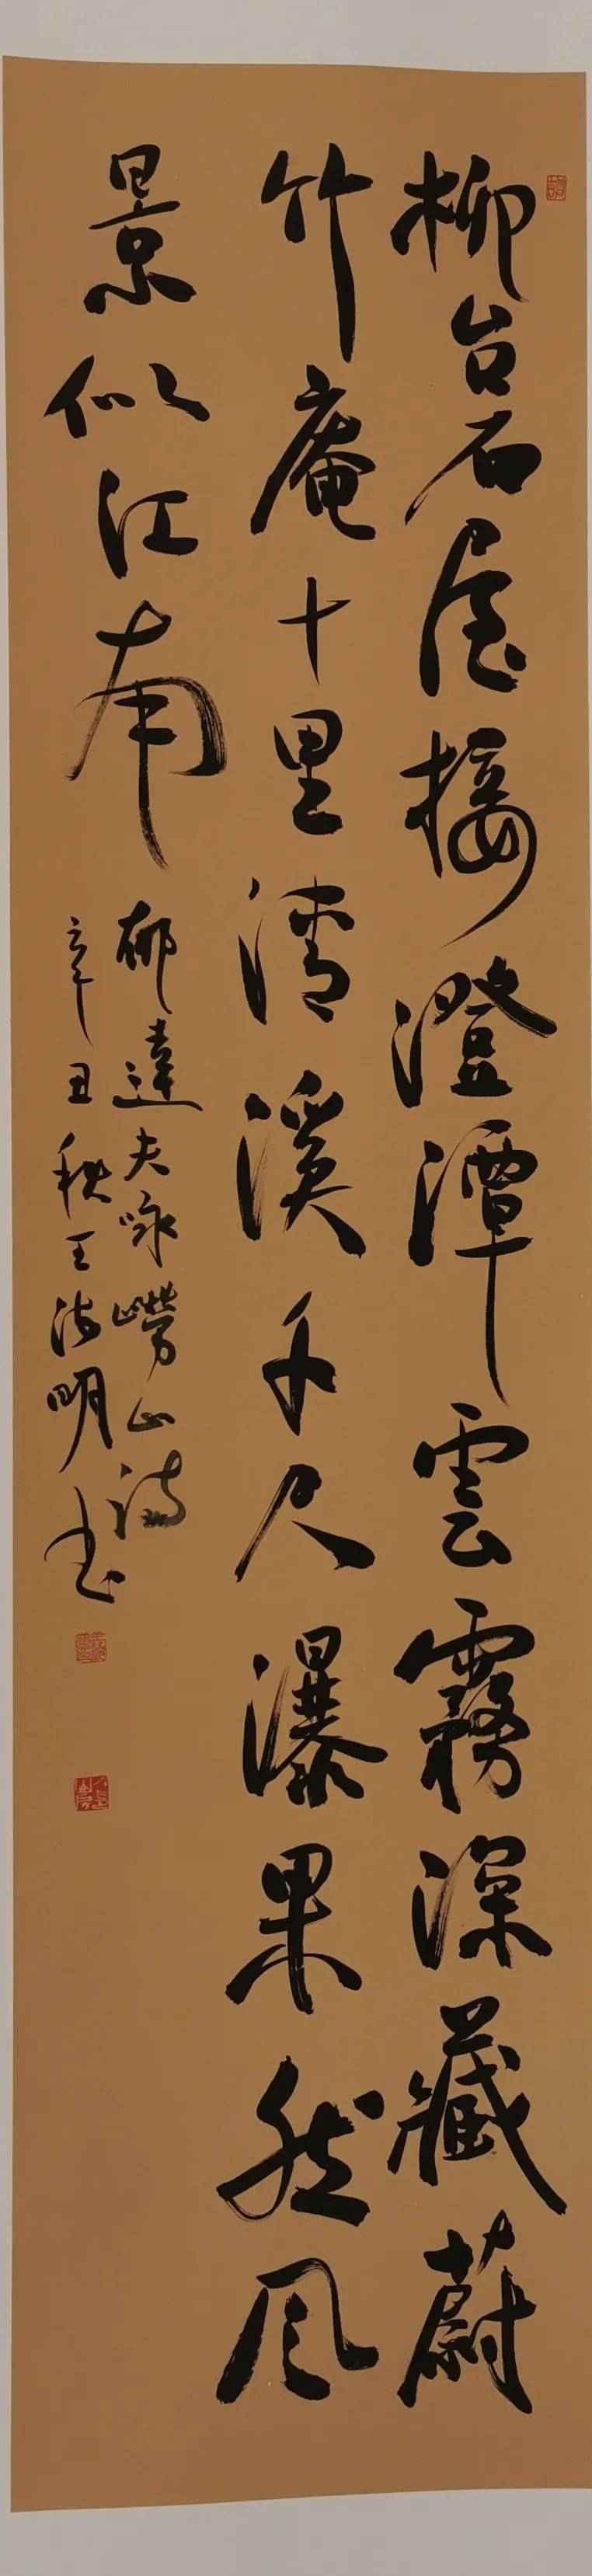 柳台石屋接澄潭雲霧深藏蔚
竹庵十里清溪千尺瀑果然風
景似江南
郁達夫咏嶗山詩
辛丑秋王海明书